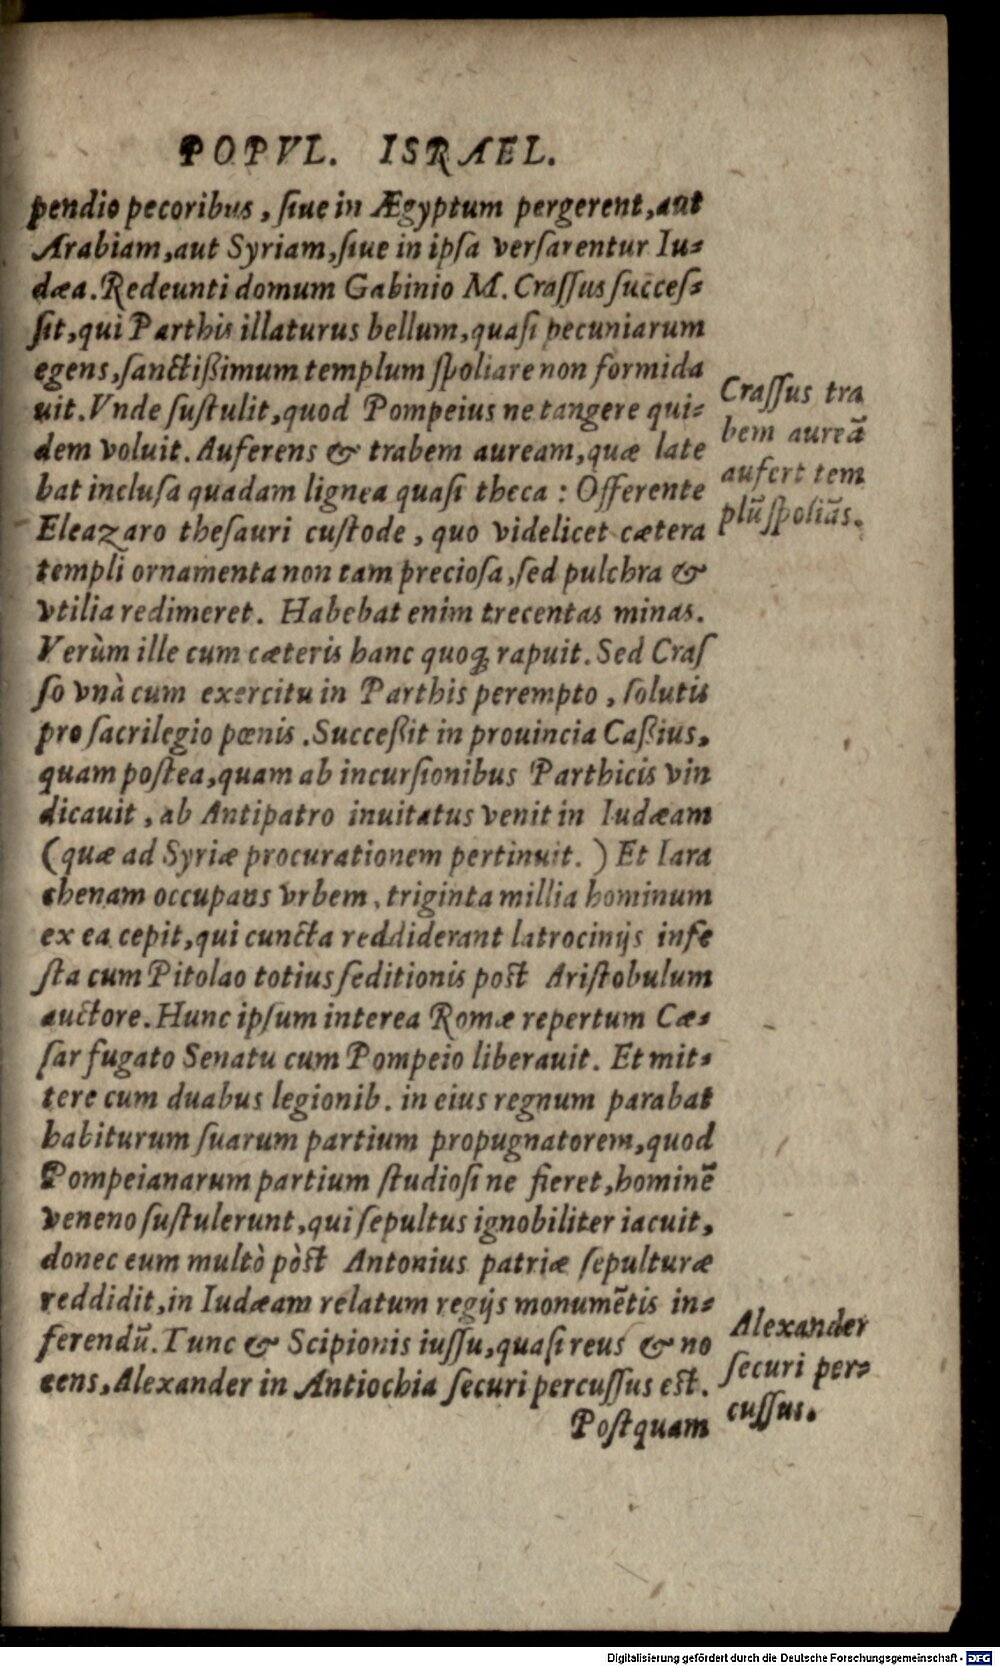 POPVL. ISRAEL.
pendio pecoribus, ſiue in Ægyptum pergerent, aut
Arabiam, aut Syriam, ſiue in ipſa verſarentur Iu-
dæa. Redeunti domum Gabinio M. Craſſus ſucceſ-
ſit, qui Parthis illaturus bellum, quaſi pecuniarum
egens, ſanctißimum templum ſpoliare non formida
uit. Vnde ſuſtulit, quod Pompeius ne tangere qui-
dem voluit. Auferens & trabem auream, quæ late
bat incluſa quadam lignea quaſi theca : Offerente
Eleazaro theſauri cuſtode, quo videlicet cætera
templi ornamenta non tam precioſa, ſed pulchra &
vtilia redimeret. Habebat enim trecentas minas.
Verùm ille cum cæteris hanc quoqꝫ rapuit. Sed Craſ
ſo vnà cum exercitu in Parthis perempto, ſolutis
pro ſacrilegio pœnis. Succeßit in prouincia Caßius,
quam poſtea, quam ab incurſionibus Parthicis vin
dicauit, ab Antipatro inuitatus venit in Iudæam
(quæ ad Syriæ procurationem pertinuit.) Et Iara
chenam occupans vrbem, triginta millia hominum
ex ea cepit, qui cuncta reddiderant latrocinijs infe
ſta cum Pitolao totius ſeditionis poſt Ariſtobulum
auctore. Hunc ipſum interea Romæ repertum Cæ-
ſar fugato Senatu cum Pompeio liberauit. Et mit-
tere cum duabus legionib. in eius regnum parabat
habiturum ſuarum partium propugnatorem, quod
Pompeianarum partium ſtudioſi ne fieret, hominē
veneno ſuſtulerunt, qui ſepultus ignobiliter iacuit,
donec eum multò pòſt Antonius patriæ ſepulturæ
reddidit, in Iudæam relatum regijs monumētis in-
ferendū. Tunc & Scipionis iuſſu, quaſi reus & no
cens, Alexander in Antiochia ſecuri percuſſus eſt.
Poſtquam
Craſſus tra
bem aureā
aufert tem
plū ſpoliās.
Alexander
ſecuri per-
cuſſus.
Digitalisierung gefördert durch die Deutsche Forschungsgemeinschaft - DFG